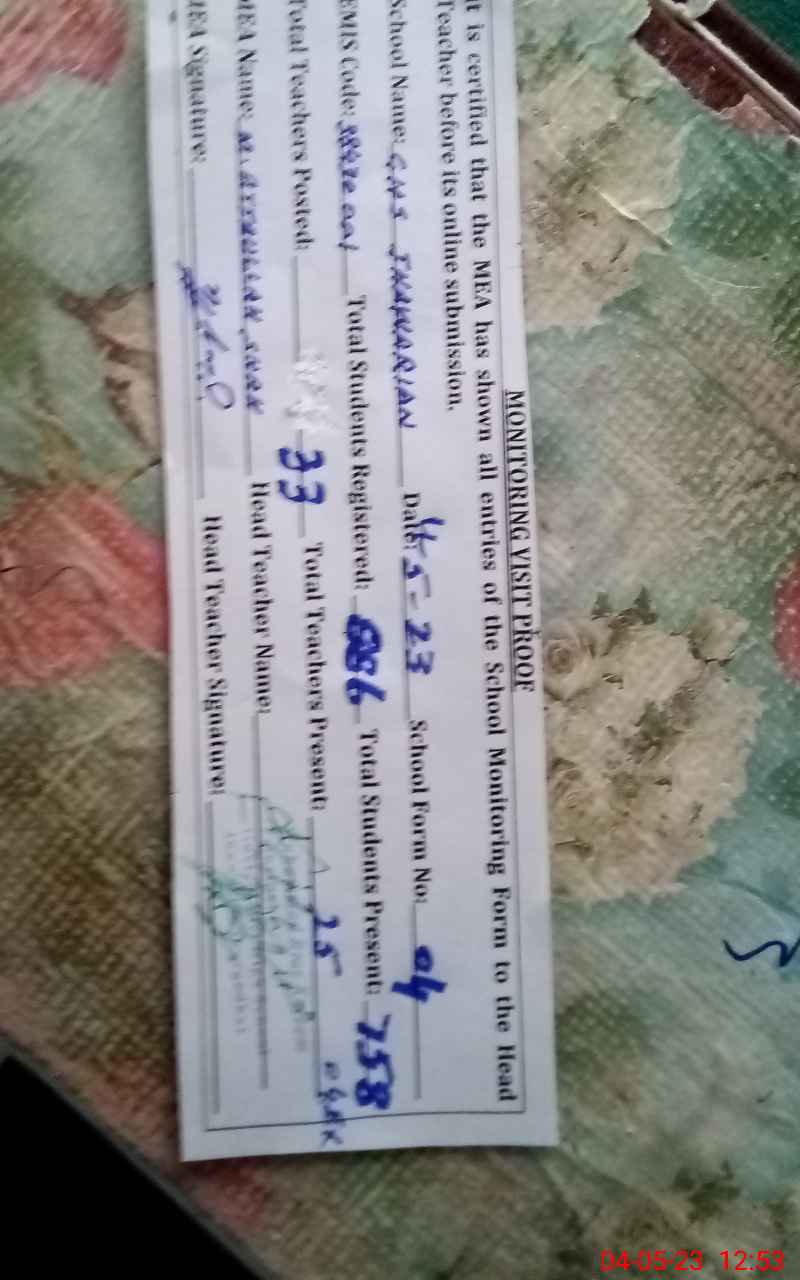 MONITORING VISIT PROOF
It is certified that the MEA has shown all entries of the School Monitoring Form to the Head
Teacher before its online submission.
School Name: GHS JHAWARIAN Date: 4-5-23 School Form No: 04
EMIS Code: Total Students Registered: Total Students Present: 758
Total Teachers Posted: 33 Total Teachers Present: 25
MEA Name: M. Head Teacher Name:
MEA Signature: Head Teacher Signature:
04-05-23 12:53